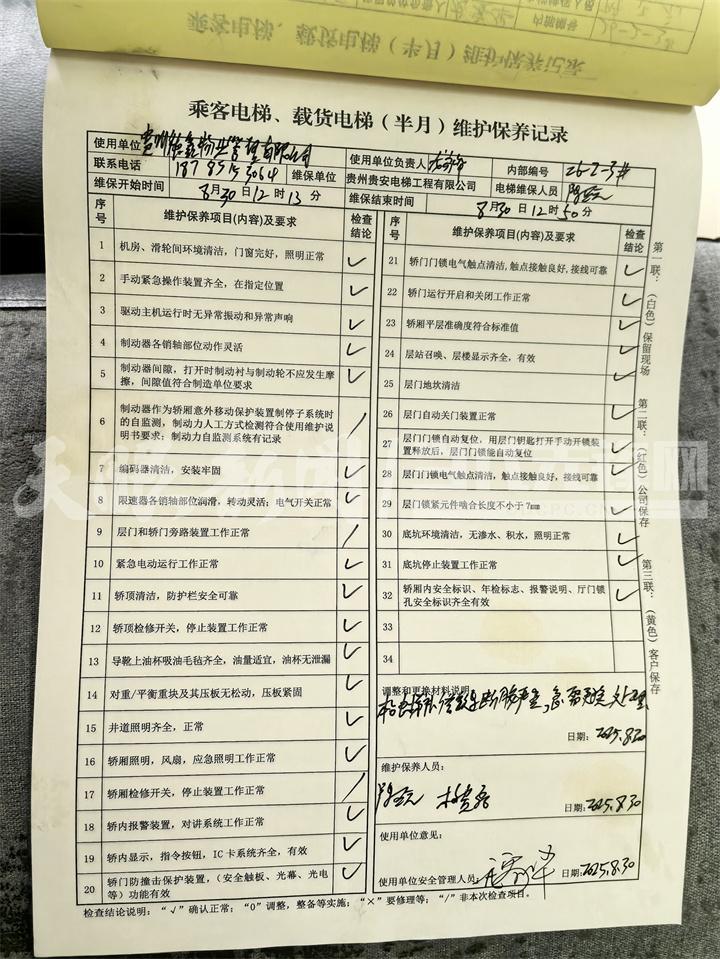 乘客电梯、载货电梯（半月）维护保养记录
使用单位
使用单位负责人
内部编号 26-2-3#
联系电话
维保单位 贵州贵安电梯工程有限公司 电梯维保人员
维保开始时间 8月30日12时13分 维保结束时间 8月30日12时50分
序号 维护保养项目(内容)及要求 检查结论
1 机房、滑轮间环境清洁，门窗完好，照明正常 √
2 手动紧急操作装置齐全，在指定位置 √
3 驱动主机运行时无异常振动和异常声响 √
4 制动器各销轴部位动作灵活 √
5 制动器间隙，打开时制动衬与制动轮不应发生摩擦，间隙值符合制造单位要求 √
6 制动器作为轿厢意外移动保护装置制停子系统时的自监测，制动力人工方式检测符合使用维护说明书要求；制动力自监测系统有记录 /
7 编码器清洁，安装牢固 √
8 限速器各销轴部位润滑，转动灵活；电气开关正常 √
9 层门和轿门旁路装置工作正常 /
10 紧急电动运行工作正常 √
11 轿顶清洁，防护栏安全可靠 √
12 轿顶检修开关，停止装置工作正常 √
13 导靴上油杯吸油毛毡齐全，油量适宜，油杯无泄漏 √
14 对重/平衡重块及其压板无松动，压板紧固 √
15 井道照明齐全，正常 √
16 轿厢照明，风扇，应急照明工作正常 √
17 轿厢检修开关，停止装置工作正常 /
18 轿内报警装置，对讲系统工作正常 √
19 轿内显示，指令按钮，IC卡系统齐全，有效 √
20 轿门防撞击保护装置，（安全触板、光幕、光电等）功能有效 √
序号 维护保养项目(内容)及要求 检查结论
21 轿门门锁电气触点清洁，触点接触良好，接线可靠 √
22 轿门运行开启和关闭工作正常 √
23 轿厢平层准确度符合标准值 √
24 层站召唤、层楼显示齐全，有效 √
25 层门地坎清洁 √
26 层门自动关门装置正常 √
27 层门门锁自动复位，用层门钥匙打开手动开锁装置释放后，层门门锁能自动复位 √
28 层门门锁电气触点清洁，触点接触良好，接线可靠 √
29 层门锁紧元件啮合长度不小于7mm √
30 底坑环境清洁，无渗水、积水，照明正常 √
31 底坑停止装置工作正常 √
32 轿厢内安全标识、年检标志、报警说明、厅门锁孔安全标识齐全有效 √
33
34
调整和更换材料说明：
日期：2025.8.30
维护保养人员：
日期：2025.8.30
使用单位意见：
使用单位安全管理人员：
日期：2025.8.30
检查结论说明：“√”确认正常；“0”调整，整备等实施；“×”要修理等；“/”非本次检查项目。
第一联：（白色）保留现场
第二联：（红色）公司保存
第三联：（黄色）客户保存